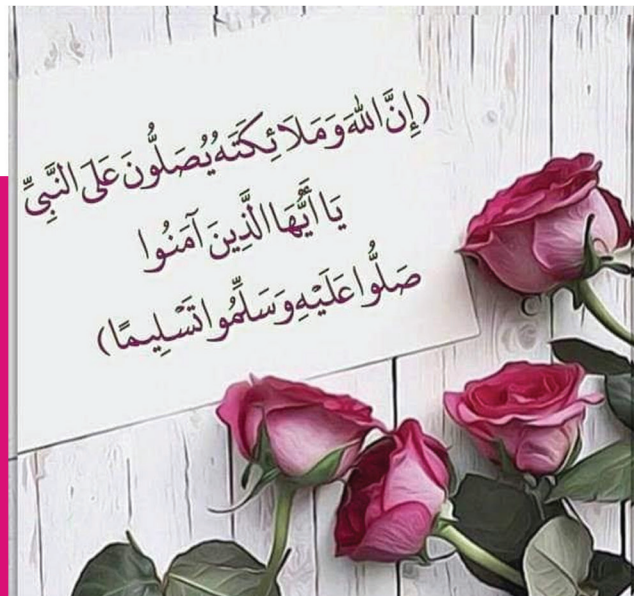 (إِنَّ اللَّهَ وَمَلَائِكَتَهُ يُصَلُّونَ عَلَى النَّبِيِّ
يَا أَيُّهَا الَّذِينَ آمَنُوا
صَلُّوا عَلَيْهِ وَسَلِّمُوا تَسْلِيمًا)